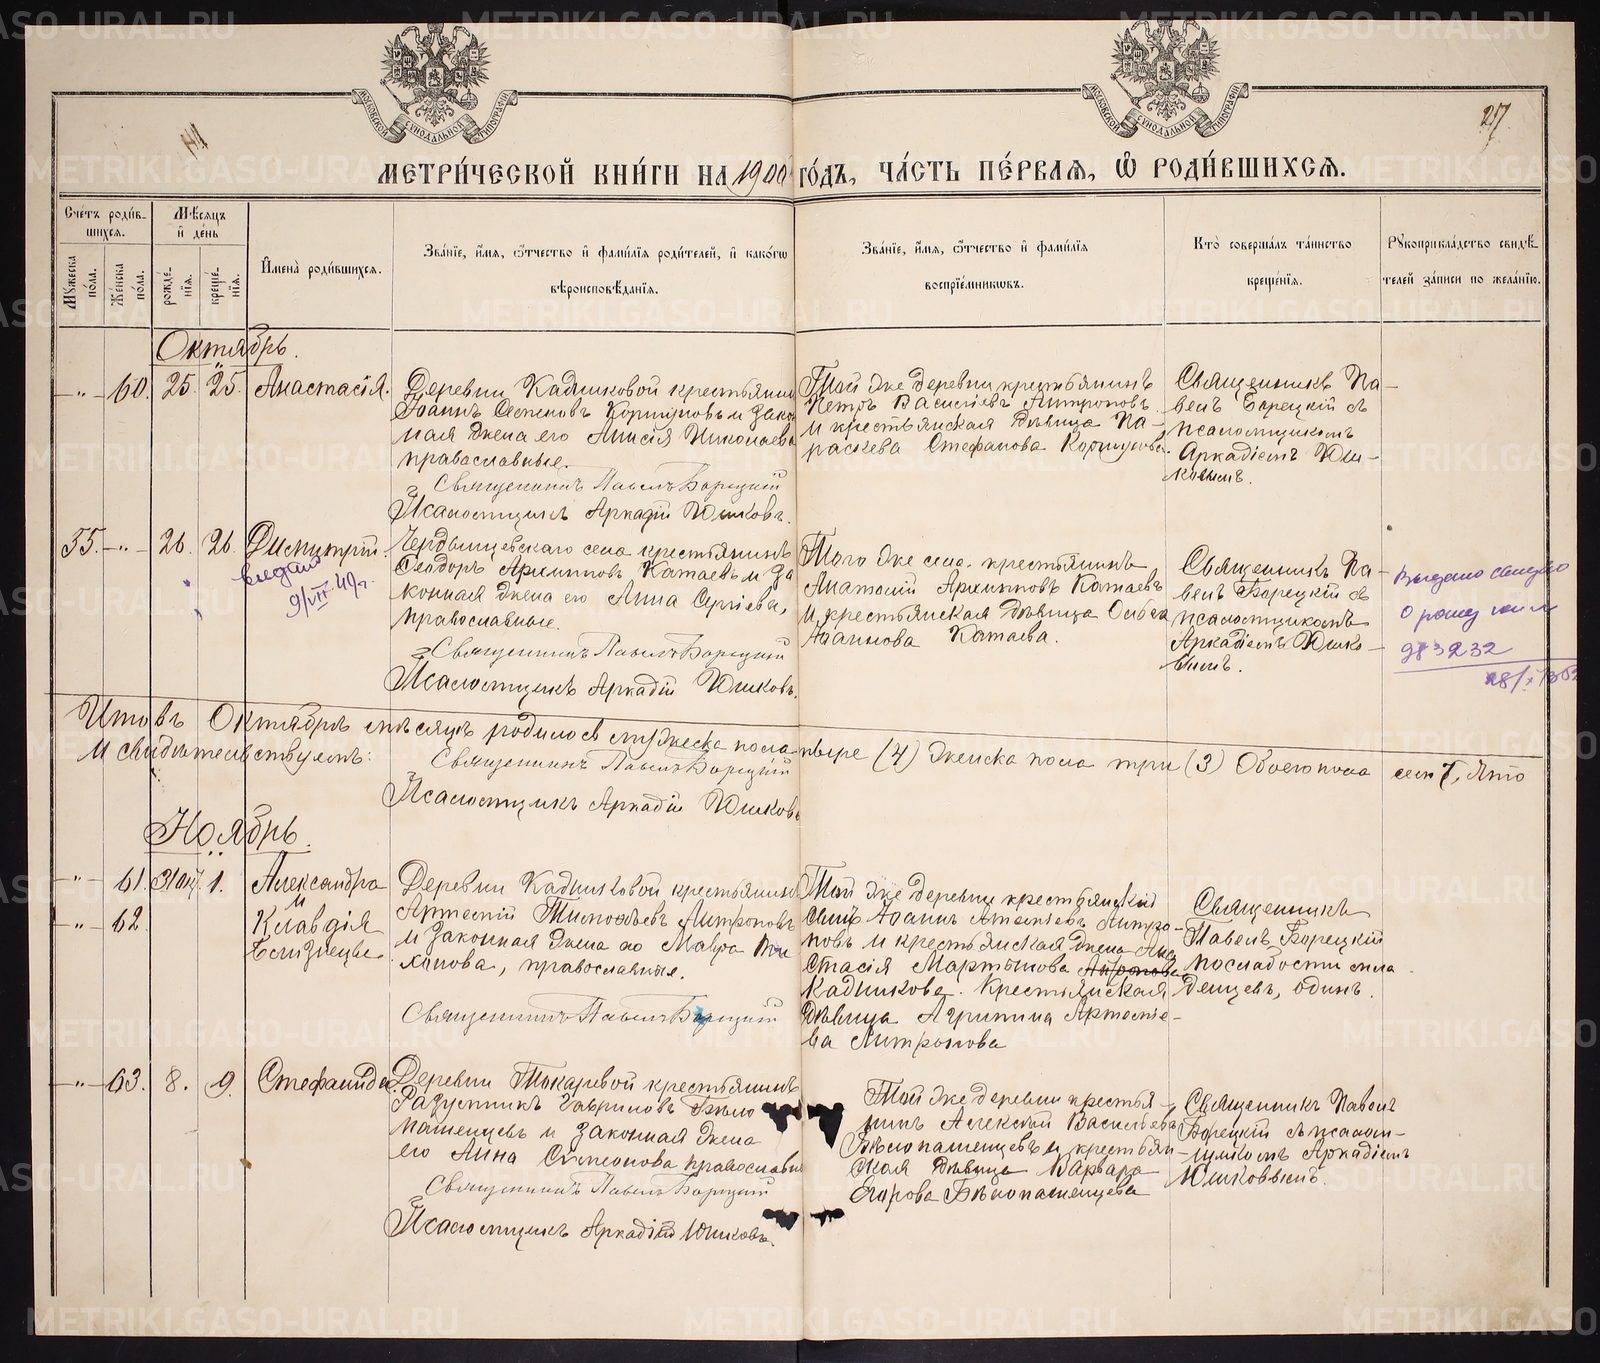 27
МЕТРИ́ЧЕСКОЙ КНИ́ГИ НА 1900 ГО́ДЪ, ЧА́СТЬ ПЕ́РВАѦ, Ѽ РОДИ́ВШИХСѦ.
Счетъ роди́вшихсѧ.
Мꙋжеска по́ла.
Же́нска по́ла.
Мѣсѧцъ и де́нь
рожде́нїѧ.
креще́нїѧ.
Имена̀ роди́вшихсѧ.
Зва́нїе, и́мѧ, ѻ҆́тчество и҆ фами́лїѧ роди́телей, и҆ како́гѡ
вѣроисповѣ́данїѧ.
Зва́нїе, и́мѧ, ѻ҆́тчество и҆ фами́лїѧ
воспрїе́мникѡвъ.
Кто̀ соверша́лъ та́инство
креще́нїѧ.
Рꙋкоприкла́дство свидѣ́телей за́писи по жела́нїю.
Октябрь.
-"- 60. 25. 25. Анастасія.
Деревни Кадниковой крестьянинъ
Іоаннъ Стефановъ Коршуновъ и зако
ная жена его Анисія Николаева
православные.
Священникъ Павелъ Борецкій
Псаломщикъ Аркадій Юшковъ.
Той же деревни крестьянинъ
Петръ Василіевъ Антроповъ
и крестьянская дѣвица Па-
раскева Стефанова Коршунова.
Священникъ Па-
велъ Борецкій съ
псаломщикомъ
Аркадіемъ Юш-
ковымъ.
55. -"- 26. 26. Димитрій.
выдано
9/VII-49г.
села крестьянинъ
Ѳеодоръ Архиповъ Катаевъ и за
конная жена его Анна Сергіева,
православные.
Священникъ Павелъ Борецкій
Псаломщикъ Аркадій Юшковъ.
Того же села крестьянинъ
Анатолій Архиповъ Катаевъ
и крестьянская дѣвица
Катаева.
Священникъ Па-
велъ Борецкій съ
псаломщикомъ
Аркадіемъ Юшко-
вымъ.
Выдано
о рожд
983232
Итовъ Октябрѣ мѣсяцѣ родилось мужеска пола четыре (4) женска пола три (3) Обоего пола семь 7, что
и свидѣтельствуемъ:
Священникъ Павелъ Борецкій
Псаломщикъ Аркадій Юшковъ
Ноябрь.
-"- 61. 31 окт. 1. Александра
и
-"- 62. Клавдія
Близнецы
Деревни Кадниковой крестьянинъ
Артемій Тимоѳеевъ Антроповъ
и законная жена его Мавра Ти
хонова, православные.
Священникъ Павелъ Борецкій
Той же деревни крестьянскій
сынъ Іоаннъ Артеміевъ Антро-
повъ и крестьянская жена Ана
стасія Мартынова Антропова
Кадникова. Крестьянская
дѣвица Агрипина Артеміе-
ва Антропова
Священникъ
Павелъ Борецкій
по слабости мла
денцевъ, одинъ.
-"- 63. 8. 9. Стефанида
Деревни Токаревой крестьянинъ
Разумникъ Гавриловъ Бѣло
пашенцевъ и законная жена
его Анна Симеонова православные
Священникъ Павелъ Борецкій
Псаломщикъ Аркадій Юшковъ.
Той же деревни крестья-
нинъ Алексѣй Васильевъ
Бѣлопашенцевъ и крестьян-
ская дѣвица Варвара
Егорова Бѣлопашенцева
Священникъ Павелъ
Борецкій съ псалом-
щикомъ Аркадіемъ
Юшковымъ.
METRIKI.GASO-URAL.RU